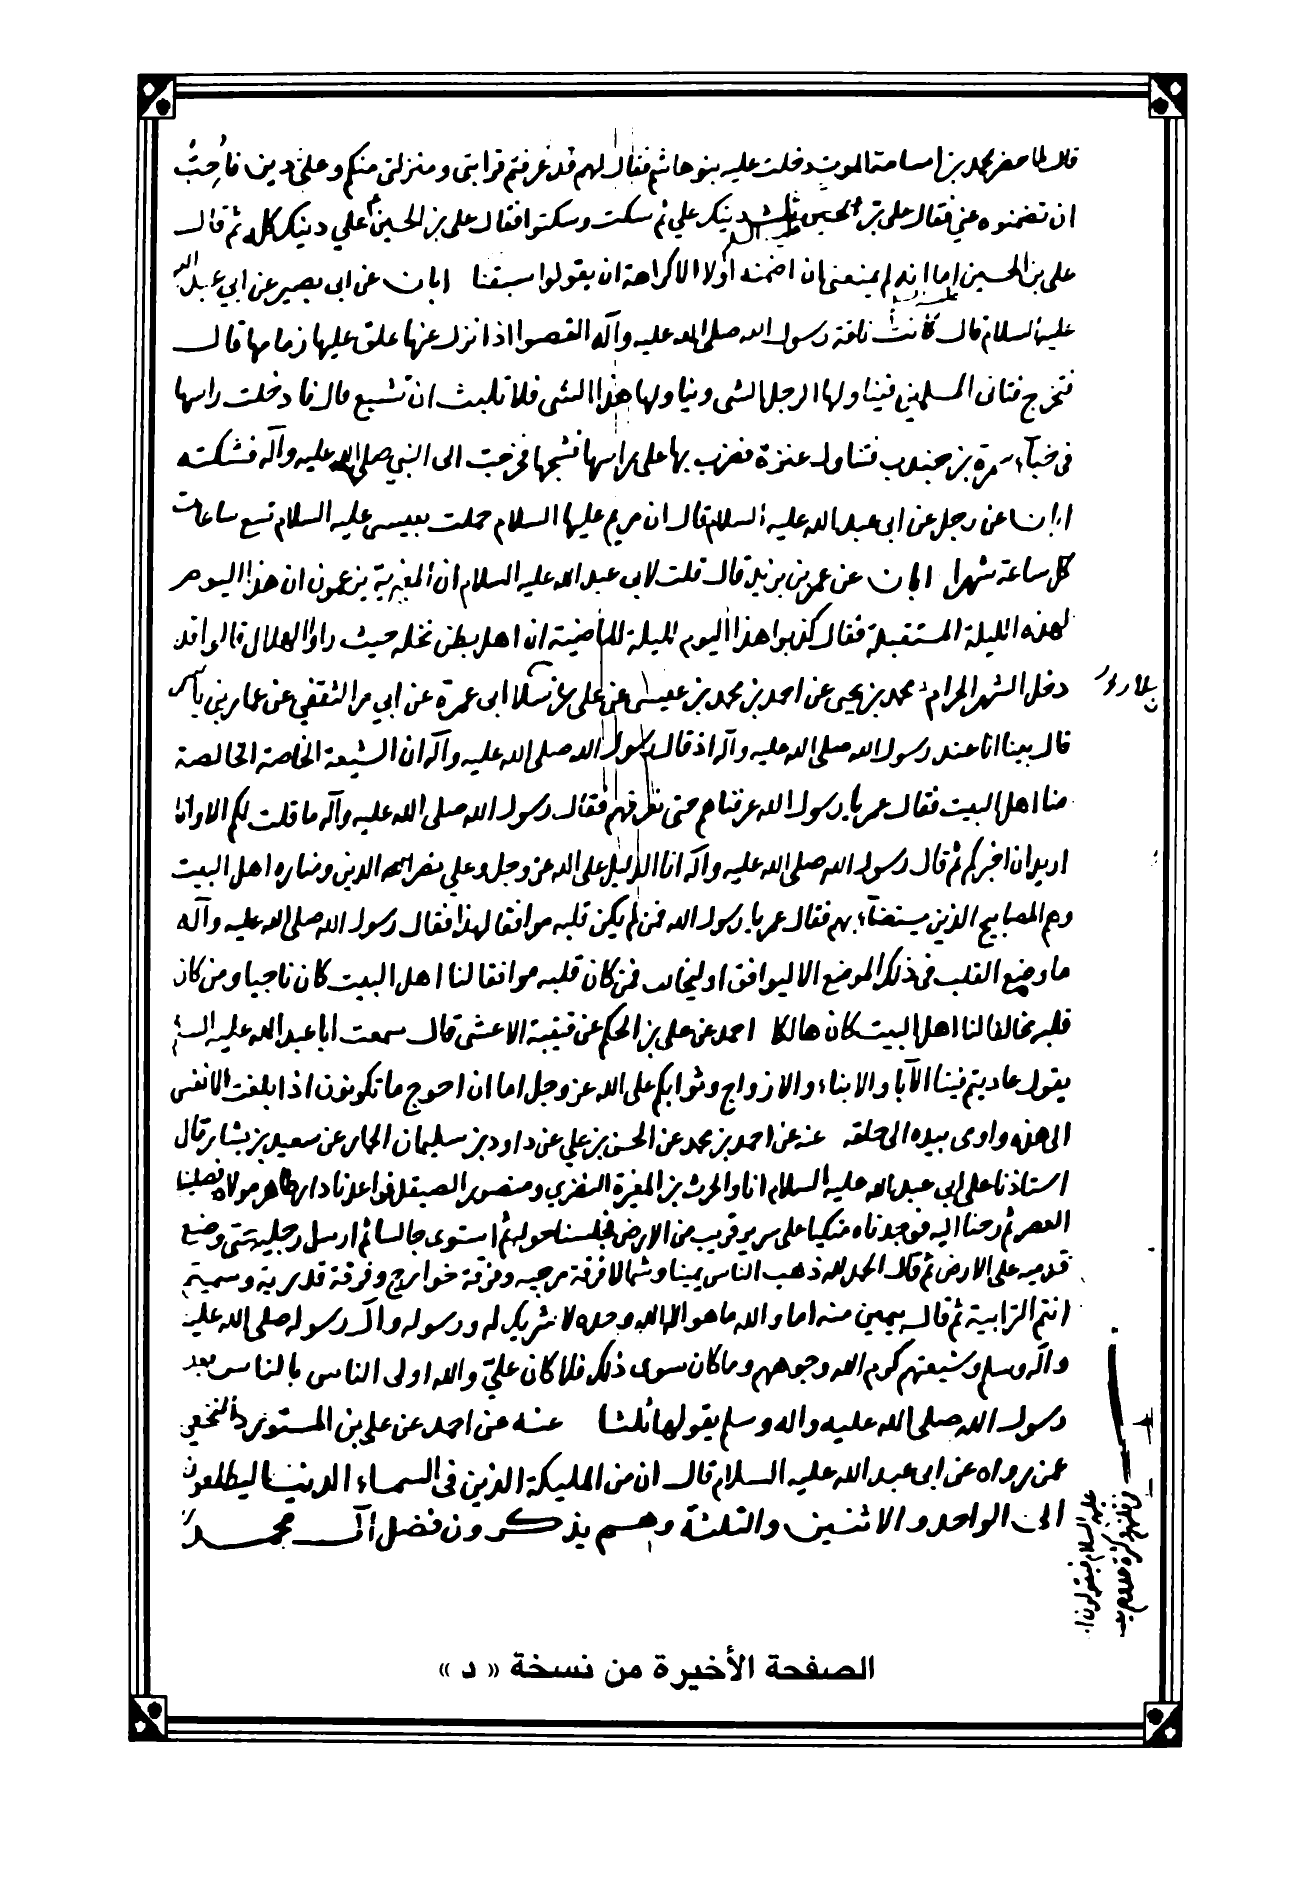 قال لما حضر محمد بن اسامة الموت دخلت عليه بنو هاشم فقال لهم قد عرفتم قرابتى ومنزلتى منكم وعلىّ دين فاُحِبُّ
ان تضمنوه عني فقال على بن الحسين ثلث دينك علي ثم سكت وسكتوا فقال على بن الحسين علي دينك كله ثم قال
على بن الحسين اما انه لم يمنعنى ان اضمنه اولا الا كراهة ان يقولوا سبقنا ابان عن ابى بصير عن ابي عبد الله
عليه السلام قال كانت ناقة رسول الله صلى الله عليه وآله القصوا اذا نزل عنها علق عليها زمامها قال
فتخرج فتاتى المسلمين فيناولها الرجل الشى ويناولها هذا الشى فلا تلبث ان تشبع قال فادخلت راسها
فى خبآء سمرة بن جندب فتناول عنزة فضرب بها على راسها فشجها فخرجت الى النبي صلى الله عليه وآله فشكته
ابان عن رجل عن ابى عبد الله عليه السلام قال ان مريم عليها السلام حملت بعيسى عليه السلام تسع ساعات
كل ساعة شهرا ابان عن عمر بن يزيد قال قلت لابى عبد الله عليه السلام ان المغيرية يزعمون ان هذا اليوم
لهذه الليلة المستقبلة فقال كذبوا هذا اليوم لليلة الماضية ان اهل بطن نخله حيث راوا الهلال قالوا قد
دخل الشهر الحرام محمد بن يحيى عن احمد بن محمد بن عيسى عن على بن ابى عمرة عن ابي مر الثقفي عن عمار بن ياسر
قال بينا انا عند رسول الله صلى الله عليه وآله اذ قال رسول الله صلى الله عليه وآله ان الشيعة الخاصة الخالصة
منا اهل البيت فقال عمر يا رسول الله عرفناهم حتى نعرفهم فقال رسول الله صلى الله عليه وآله ما قلت لكم الا وانا
اريد ان اخبركم ثم قال رسول الله صلى الله عليه وآله انا الدليل على الله عز وجل وعلي نصر الدين ومناره اهل البيت
وهم المصابيح الذين يستضآء بهم فقال عمر يا رسول الله فمن لم يكن قلبه موافقا لهذا فقال رسول الله صلى الله عليه وآله
ما وضع القلب فى ذلك الموضع الا ليوافق او ليخالف فمن كان قلبه موافقا لنا اهل البيت كان ناجيا ومن كان
قلبه مخالفا لنا اهل البيت كان هالكا احمد عن على بن الحكم عن قتيبة الاعشى قال سمعت ابا عبد الله عليه السلم
يقول عاديتم فينا الآبا والابناء والازواج وثوابكم على الله عز وجل اما ان احوج ما تكونون اذا بلغت الانفس
الى هذه واوى بيده الى حلقه عنه عن احمد بن محمد عن الحسن بن علي عن داود بن سليمان الحمار عن سعيد بن يسار قال
استاذنا على ابى عبد الله عليه السلام انا والحرث بن المغيرة النضرى ومنصور الصيقل فواعدنا دار طاهر مولاه فصلينا
العصر ثم رحنا اليه فوجدناه متكيا على سرير قريب من الارض فجلسنا حوله ثم استوى جالسا ثم ارسل رجليه حتى وضع
قدميه على الارض ثم قال الحمد لله ذهب الناس يمينا وشمالا فرقة مرجيه وفرقة خوارج وفرقة قدرية وسميتم
انتم الترابية ثم قال بيمين منه اما والله ما هو الا الله وحده لا شريك له ورسوله وآل رسوله صلى الله عليه
وآله وسلم وشيعتهم كرم الله وجوههم وما كان سوى ذلك فلا كان عليّ والله اولى الناس بالناس بعد
رسول الله صلى الله عليه واله وسلم يقولها ثلثا عنه عن احمد عن على بن المستورد النخعي
عمن رواه عن ابى عبد الله عليه السلام قال ان من المليكة الذين فى السماء الدنيا ليطلعون
الى الواحد والاثنين والثلثة وهم يذكرون فضل آل محمد
عليهم السلام فيقولون
الصفحة الأخيرة من نسخة « د »